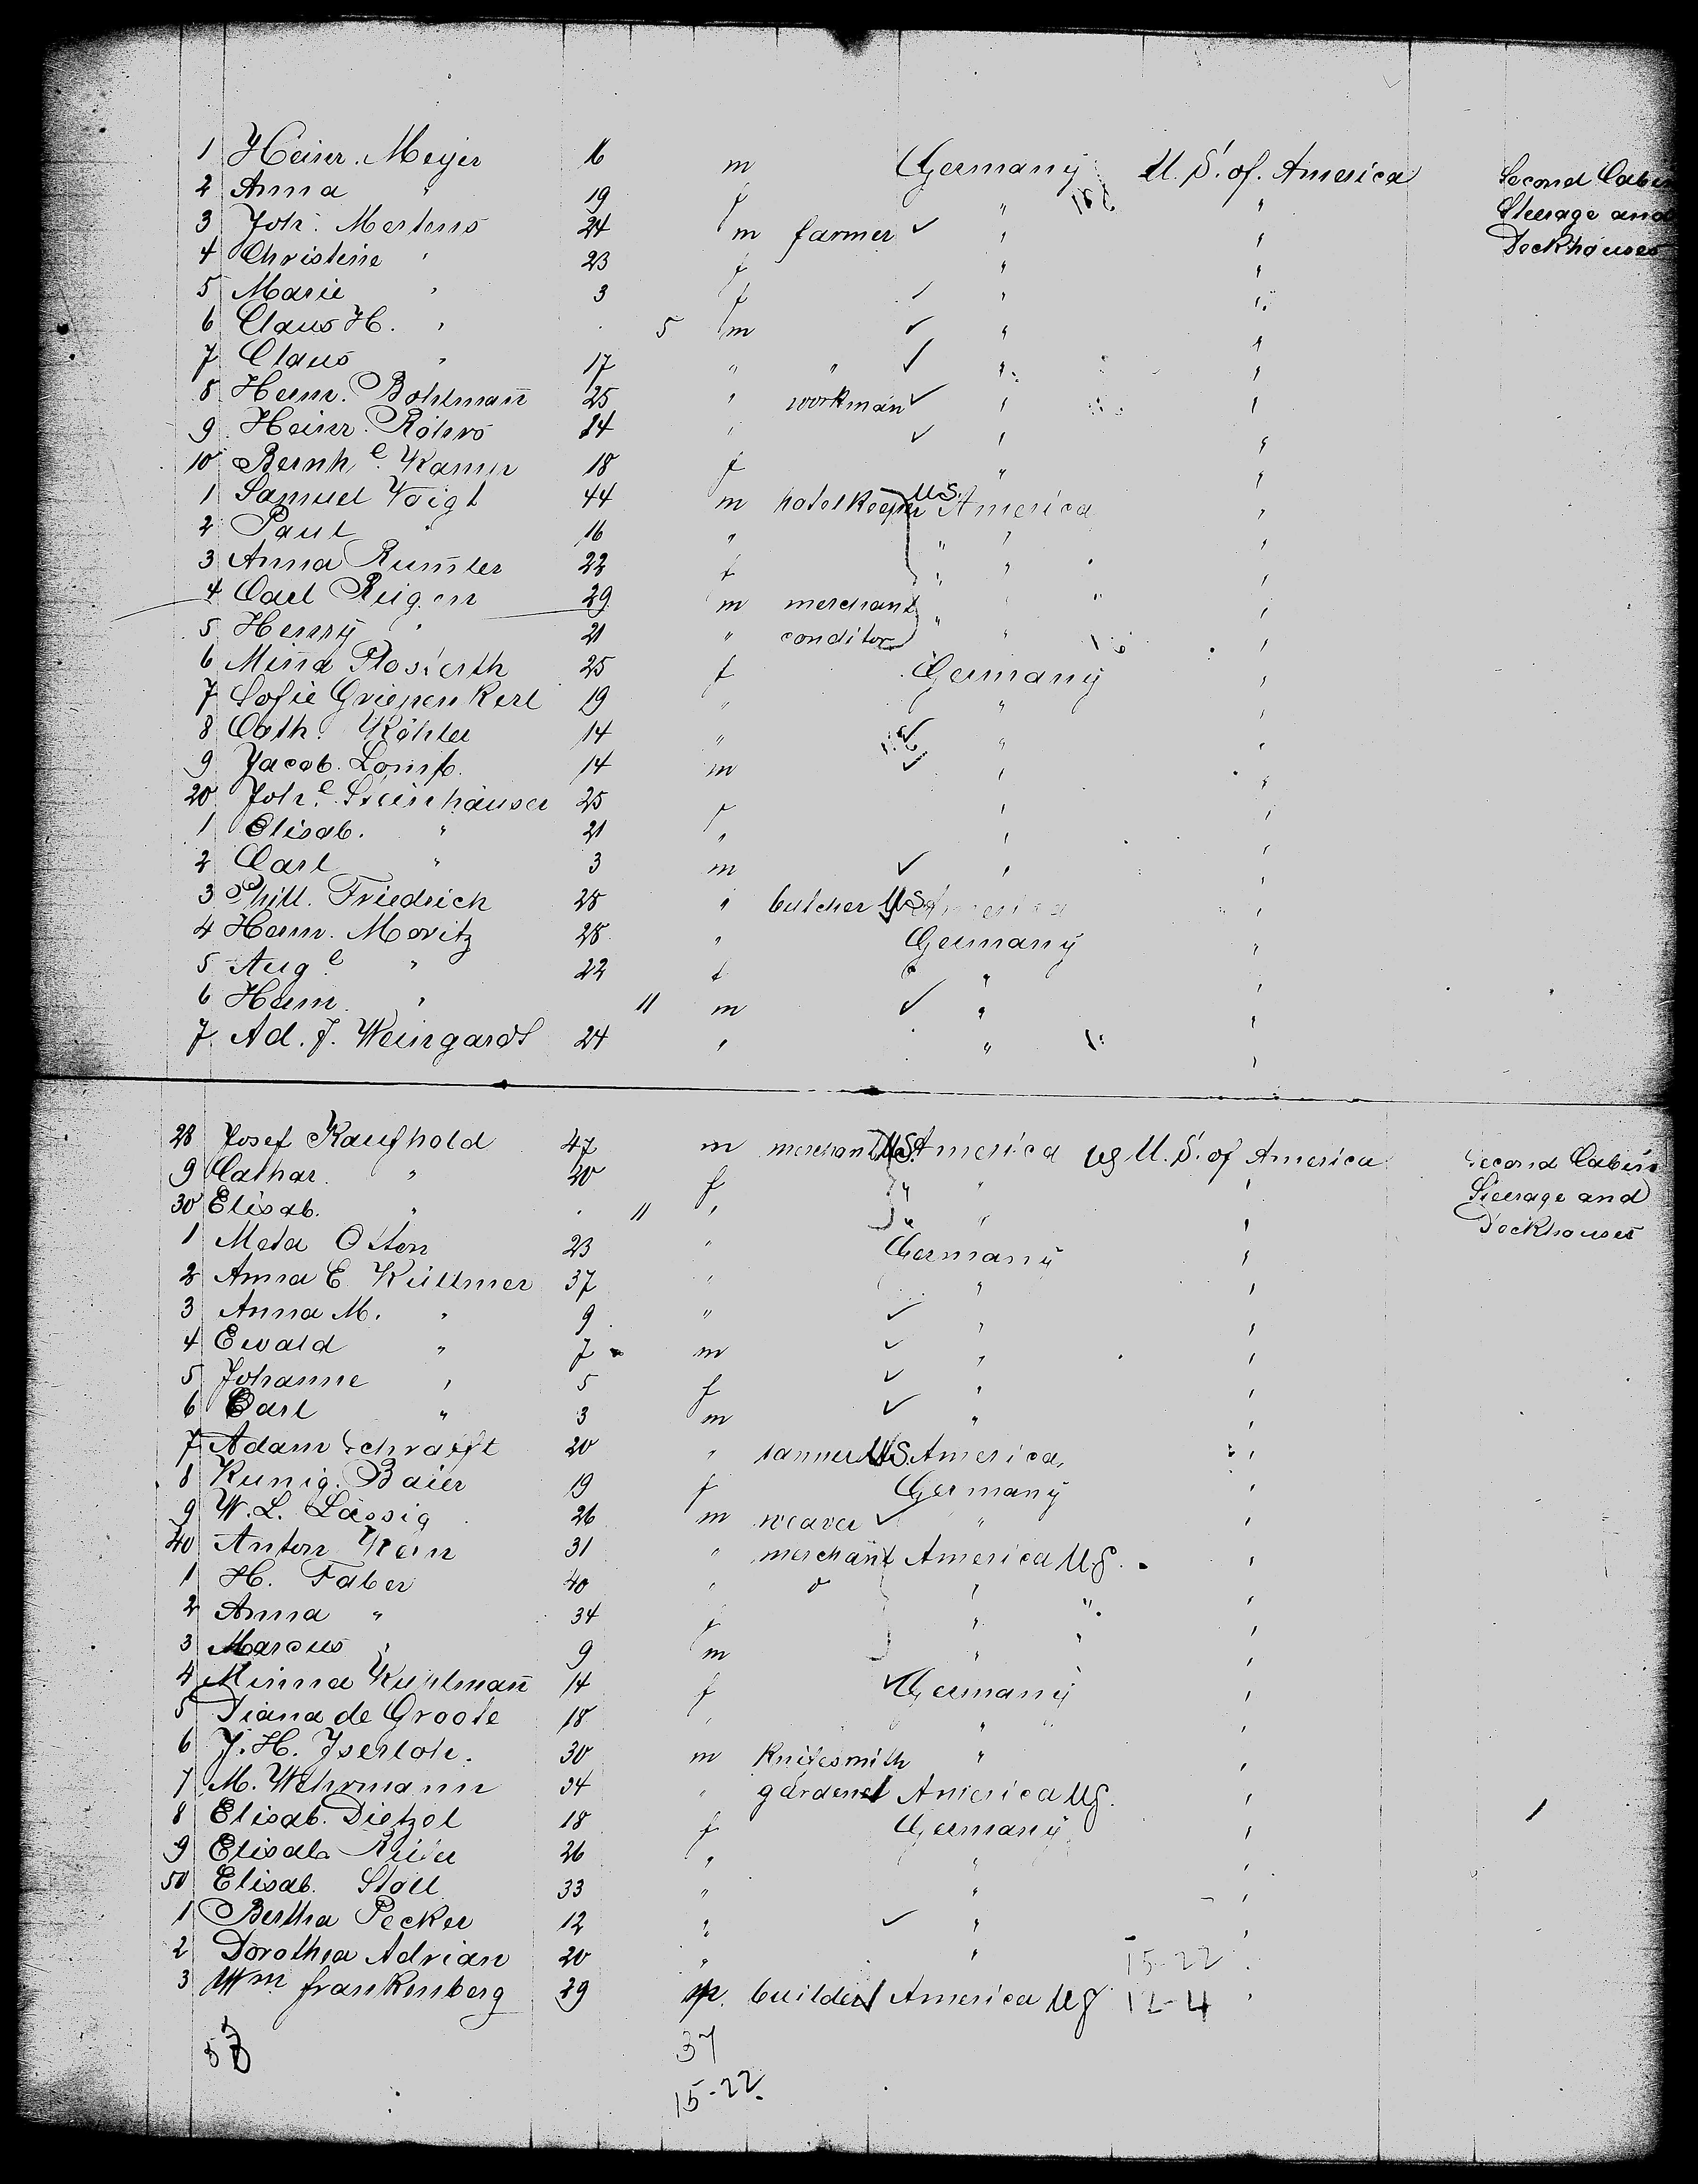 1 Heinr. Meyer 16 m Germany U. S. of. America Second Cabin
2 Anna " 19 f " " Steerage and
3 Joh. Mertens 24 m farmer ✓ " " Deckhouses
4 Christine " 23 f " "
5 Marie " 3 f ✓ " "
6 Claus H. " 5 m ✓ " "
7 Claus " 17 " " ✓ " "
8 Herm. Bohlman̄ 25 " workman ✓ " "
9 Heinr. Röhrs 24 " ✓ " "
10 Bernh.e Kamm 18 f " "
1 Samuel Voigt 44 m hotelkeeper U.S. America "
2 Paul " 16 " " " "
3 Anna Rum̄ler 22 f " " "
4 Carl Reigen 29 m merchant " " "
5 Henry " 21 " conditor " " "
6 Min̄a 25 f Germany "
7 Sofie Griepenkerl 19 " " "
8 Cath. Köhler 14 " ✓ " "
9 Jacob. 14 m ✓ " "
20 Joh.e Steinhäuser 25 f " "
1 Elisab. " 21 " " "
2 Carl " 3 m ✓ " "
3 Phill. Friedrich 28 " butcher U.S. America "
4 Herm. Moritz 28 " Germany "
5 Aug.e " 22 f " "
6 Herm. " 11 m ✓ " "
7 Ad. J. Weingardt 24 " " "
28 Josef Kaufhold 47 m merchant U.S. America U.S. of America Second Cabin
9 Cathar. " 40 f " " " Steerage and
30 Elisab. " 11 " " " " Deckhouses
1 Meta Otten 23 " Germany "
2 Anna E Küllmer 37 " " "
3 Anna M. " 9 " ✓ " "
4 Ewald " 7 m ✓ " "
5 Johanne " 5 f ✓ " "
6 Carl " 3 m ✓ " "
7 Adam Schrafft 20 " tanner U.S. America "
8 Kunig. Baier 19 f Germany "
9 W. L. Lässig 26 m weaver ✓ " "
40 Anton 31 " merchant America US. "
1 H. Faber 40 " " " "
2 Anna " 34 f " " "
3 Marcus " 9 m " " "
4 Minna Kuhlman̄ 14 f ✓ Germany "
5 Diana de Groote 18 " " "
6 J. H. Iserloh. 30 m Knifesmith " "
7 M. Wehrmann 34 " gardener America US. "
8 Elisab. Dietzel 18 f Germany "
9 Elisab. 26 " " "
50 Elisab. Stoll 33 " " "
1 Bertha Pecker 12 " ✓ " "
2 Dorothea Adrian 20 " " 15-22 "
3 Wm. Frankenberg 29 m. builder America US 12-4 "
53 37
15-22.